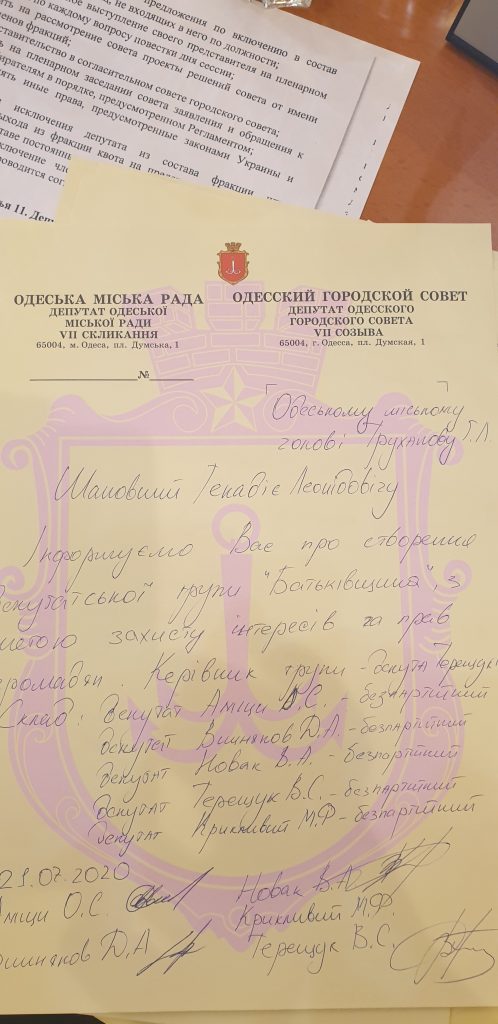 предложения по включению в состав
не входящих в него по должности;
выступление своего представителя на пленарном
по каждому вопросу повестки дня сессии;
на рассмотрение совета проекты решений совета от имени
членов фракций;
в согласительном совете городского совета;
на пленарном заседании совета заявления и обращения к
в порядке, предусмотренном Регламентом;
иные права, предусмотренные законами Украины и
исключения депутата из состава фракции
из фракции квота на
11.
ОДЕСЬКА МІСЬКА РАДА
ДЕПУТАТ ОДЕСЬКОЇ
МІСЬКОЇ РАДИ
VII СКЛИКАННЯ
65004, м. Одеса, пл. Думська, 1
№
ОДЕССКИЙ ГОРОДСКОЙ СОВЕТ
ДЕПУТАТ ОДЕССКОГО
ГОРОДСКОГО СОВЕТА
VII СОЗЫВА
65004, г. Одесса, пл. Думская, 1
Одеському міському
голові Труханову Г.Л.
Шановний Генадіє Леонідовічу
Інформуємо Вас про створення
депутатської групи "Батьківщина", з
метою захисту інтересів та прав
громадян. Керівник групи - депутат Терещук
Склад: депутат Аміци О.С. - безпартійний
депутат Вишняков Д.А. - безпартійний
депутат Новак В.А. - безпартійний
депутат Терещук В.С. - безпартійний
депутат Крикливий М.Ф - безпартійний
21.07.2020
Аміци О.С.
Вишняков Д.А
Новак В.А
Крикливий М.Ф.
Терещук В.С.